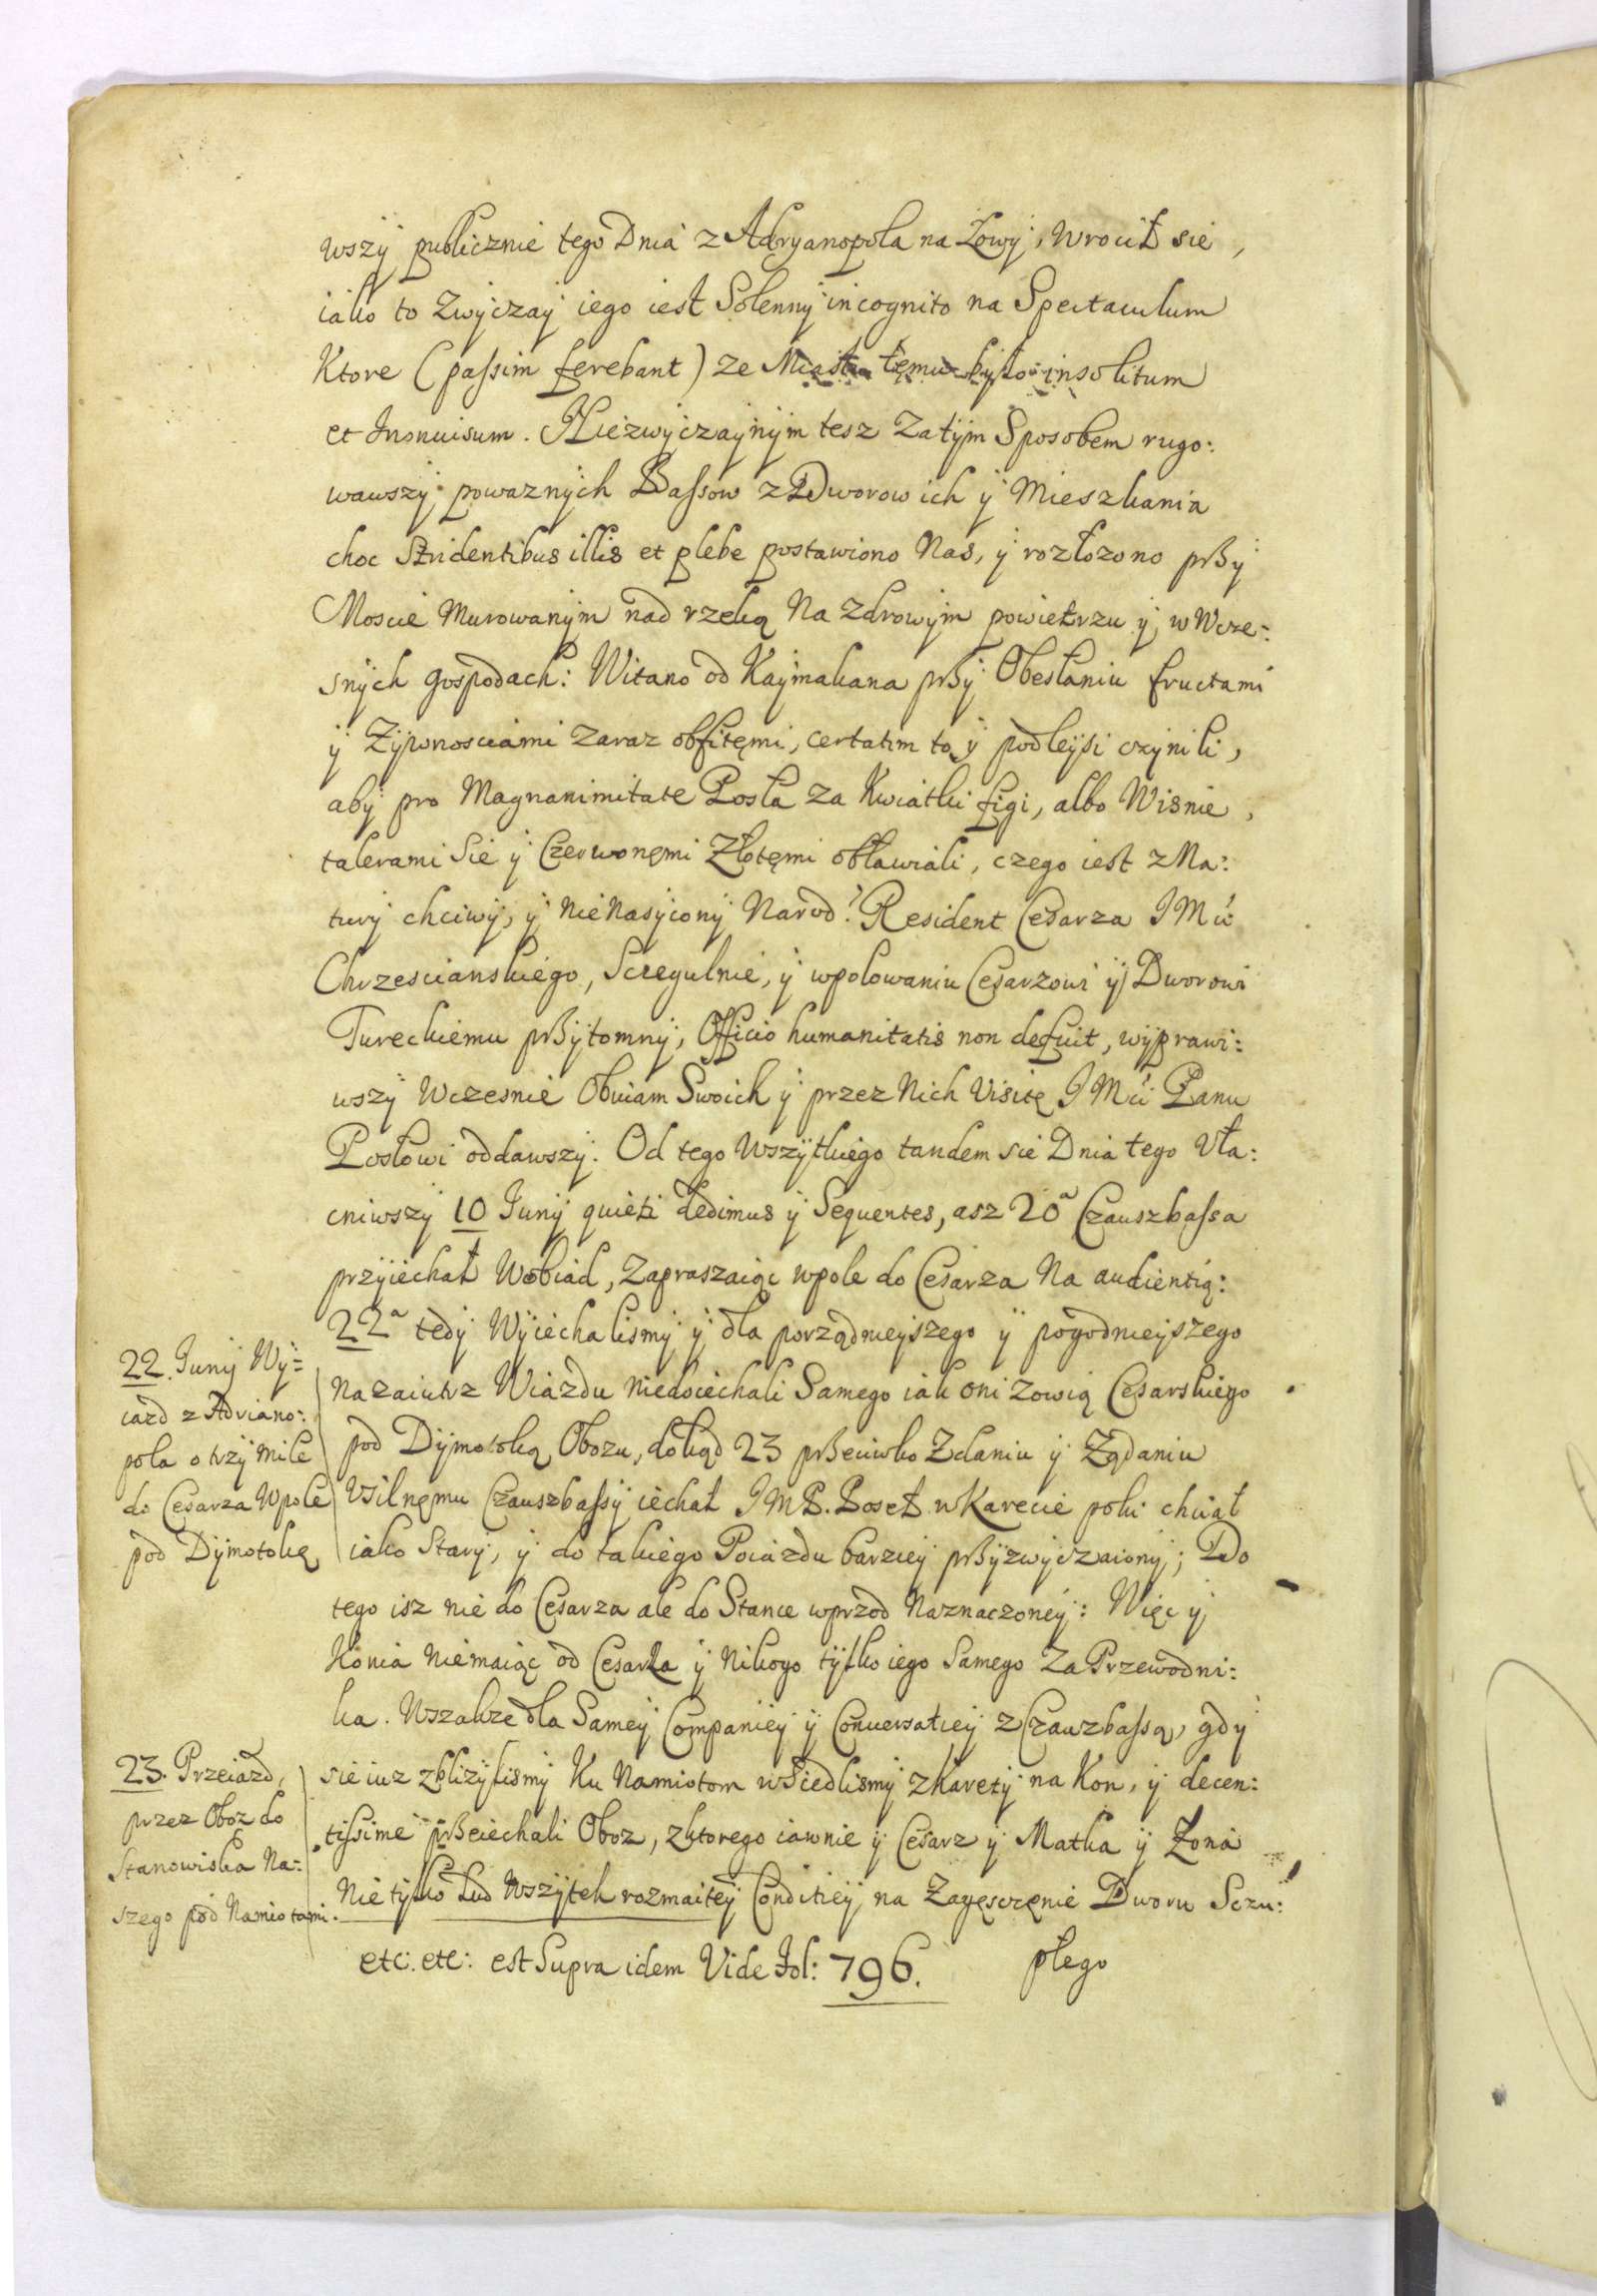 wszÿ publicznie tego Dnia z Adryanopola na Łowÿ, wrocił sie,
iako to Zwÿczaÿ iego iest Solennÿ incognito na Spectaculum
Ktore (paſsim ferebant) ze Miastu temu bÿło insolitum
et Inonuisum. Niezwÿczaÿnÿm tesz Zatÿm Sposobem rugo:
wawszÿ powaznÿch Baſsow z Dworow ich ÿ Mieszkania
choc Stridentibus illis et plebe postawiono Nas, ÿ rozłozono przÿ
Moscie Murowanÿm nad rzeką Na Zdrowÿm powietrzu ÿ w Wcze:
snÿch gospodach: Witano od Kaÿmakana przÿ Obesłaniu fructami
ÿ Zÿwnosciami zaraz obfitęmi, certatim to ÿ podleÿsi czÿnili,
abÿ pro Magnanimitate Posła za Kwiatki figi, albo Wisnie,
talerami Sie ÿ Czerwonęmi Złotęmi obławiali, czego iest z Na:
turÿ chciwÿ, ÿ nieNasÿconÿ Narod. Resident Cesarza JMci
Chrzescianskiego, Sczegulnie, ÿ wpolowaniu Cesarzowi ÿ Dworowi
Tureckiemu przÿtomnÿ, Officio humanitatis non defuit, wÿprawi:
wszÿ Wczesnie Obuiam Swoich ÿ przez Nich Visitę JMci Panu
Posłowi oddawszÿ. Od tego Wszÿtkiego tandem sie Dnia tego Vła:
cniwszÿ 10 Junÿ quieti dedimus ÿ Sequentes, asz 20ª Czauszbaſsa
przÿiechał Wobiad, Zapraszaiąc wpole do Cesarza Na audientią:
22ª tedÿ Wÿiechalismÿ ÿ dla porządnieÿszego ÿ pogodnieÿszego
Nazaiutrz Wiazdu niedoiechali Samego iak oni zowią Cesarskiego
pod Dÿmotoką Obozu, dokąd 23 przeciwko Zdaniu ÿ Ządaniu
Vsilnęmu Czauszbaſsÿ iechał JMP. Poseł w Karecie poki chciał
iako Starÿ, ÿ do takiego Poiazdu barzieÿ przÿzwÿczaionÿ; Do
tego isz nie do Cesarza ale do Stance wprzod Naznaczoneÿ: Więc ÿ
Konia Niemaiąc od Cesarza ÿ Nikogo tÿlko iego Samego Za Przewodni:
ka. Wszakze dla Sameÿ Companieÿ ÿ Conuersatieÿ z Czauzbaſsą, gdÿ
sie iuz zblizÿlismÿ Ku Namiotom wSiedlismÿ z Karetÿ na Kon, ÿ decen:
tiſsime przeiechali Oboz, z ktorego iawnie ÿ Cesarz ÿ Matka ÿ Zona
Nie tÿlko Lud Wszÿtek rozmaiteÿ Conditieÿ na Zagęsczęnie Dworu Sczu:
etc: etc: est Supra idem Vide fol: 796. płego
22. Junÿ Wÿ:
iazd z Adriano:
pola o trzÿ Mile
do Cesarza Wpole
pod Dÿmotokę
23. Przeiazd,
przez Oboz do
Stanowiska Na:
szego pod Namiotami.